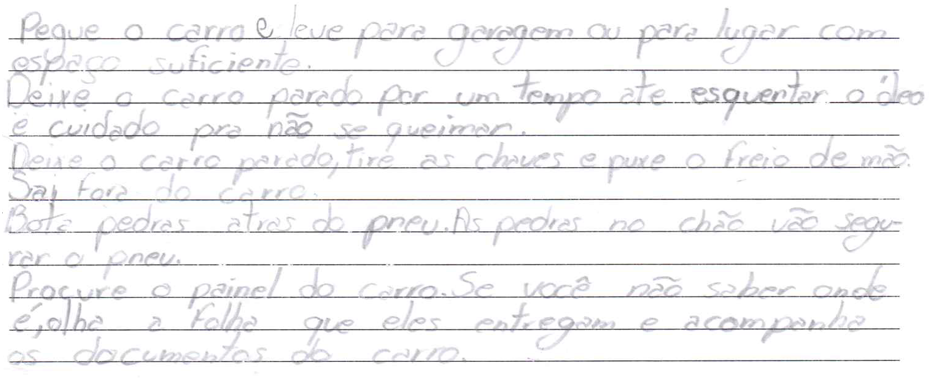 Pegue o carro e leve para garagem ou para lugar com
espaço suficiente.
Deixe o carro parado por um tempo ate esquentar o óleo
e cuidado pra não se queimar.
Deixe o carro parado, tire as chaves e puxe o freio de mão.
Sai fora do carro.
Bota pedras atras do pneu. As pedras no chão vão segu-
rar o pneu.
Procure o painel do carro. Se você não saber onde
é, olha a folha que eles entregam e acompanha
os documentos do carro.